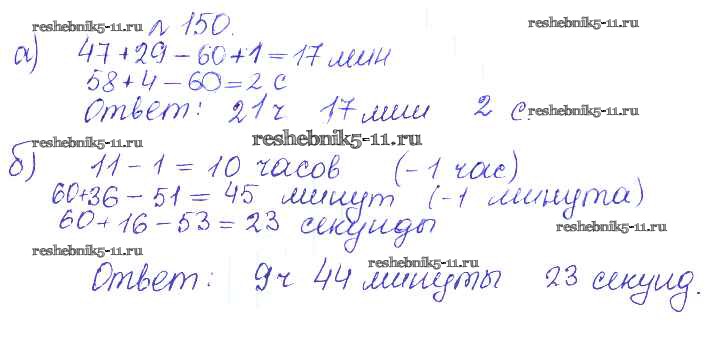 reshebnik5-11.ru № 150. reshebnik5-11.ru
а) 47 + 29 - 60 + 1 = 17 мин
58 + 4 - 60 = 2 с
reshebnik5-11.ru
Ответ: 21 ч 17 мин 2 с. reshebnik5-11.ru
reshebnik5-11.ru reshebnik5-11.ru
б) 11 - 1 = 10 часов (-1 час)
60+36 - 51 = 45 минут (-1 минута)
60 + 16 - 53 = 23 секунды
reshebnik5-11.ru reshebnik5-11.ru
reshebnik5-11.ru
Ответ: 9 ч 44 минуты 23 секунд.
reshebnik5-11.ru